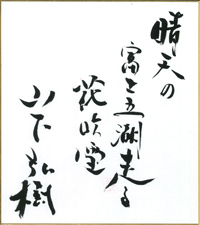 晴天の
富士五湖走る
花吹雪
山下弘樹